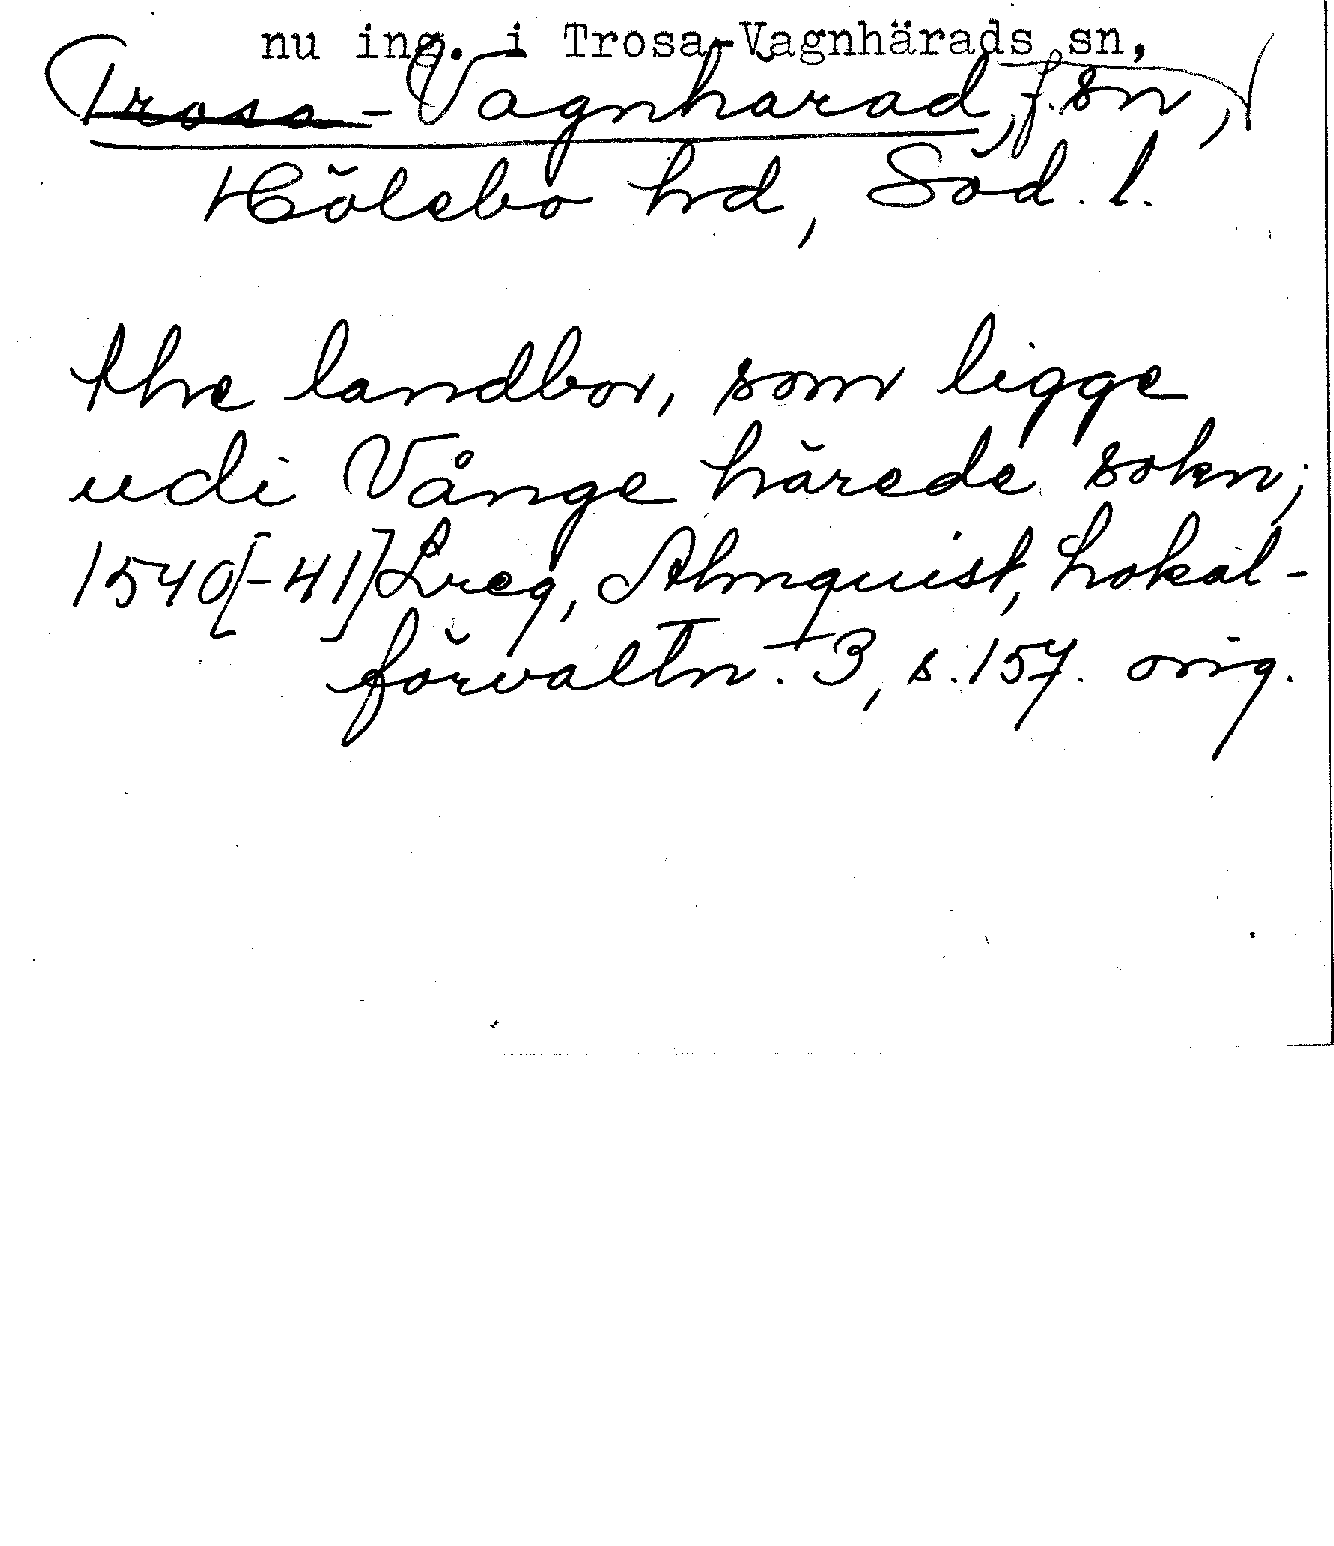 nu ing. i Trosa-Vagnhärads sn,
Trosa-Vagnhärad, f. sn,
Hölebo hd, Söd. l.
the landbor, som ligge
udi Vånge härede sokn;
1540[-41] Lreg, Almquist, Lokal-
förvaltn. 3, s. 157. orig.